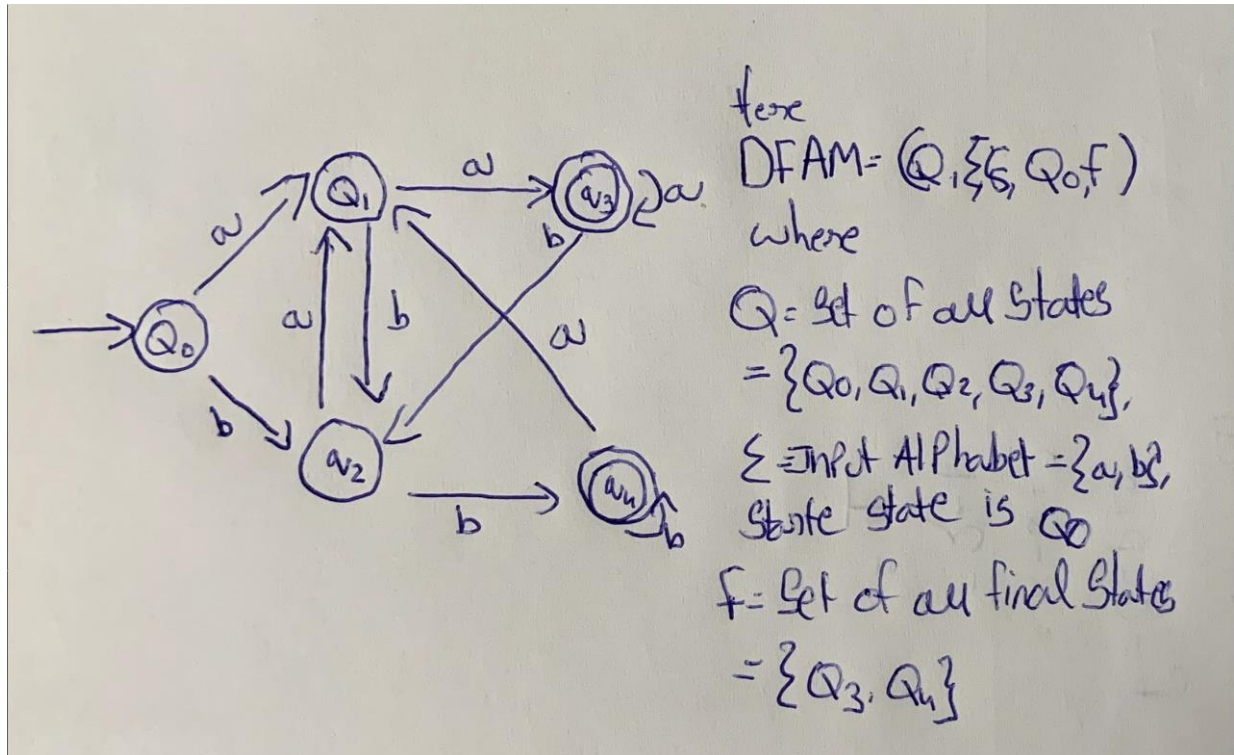 a
Q1
a
q3
a
b
a
Q0
a
b
b
q2
b
q4
b
Here
DFAM = (Q, Σ, δ, Q0, f)
where
Q = Set of all States
= {Q0, Q1, Q2, Q3, Q4},
Σ = Input AlPhabet = {a, b},
Starte state is Q0
f = Set of all final States
= {Q3, Q4}